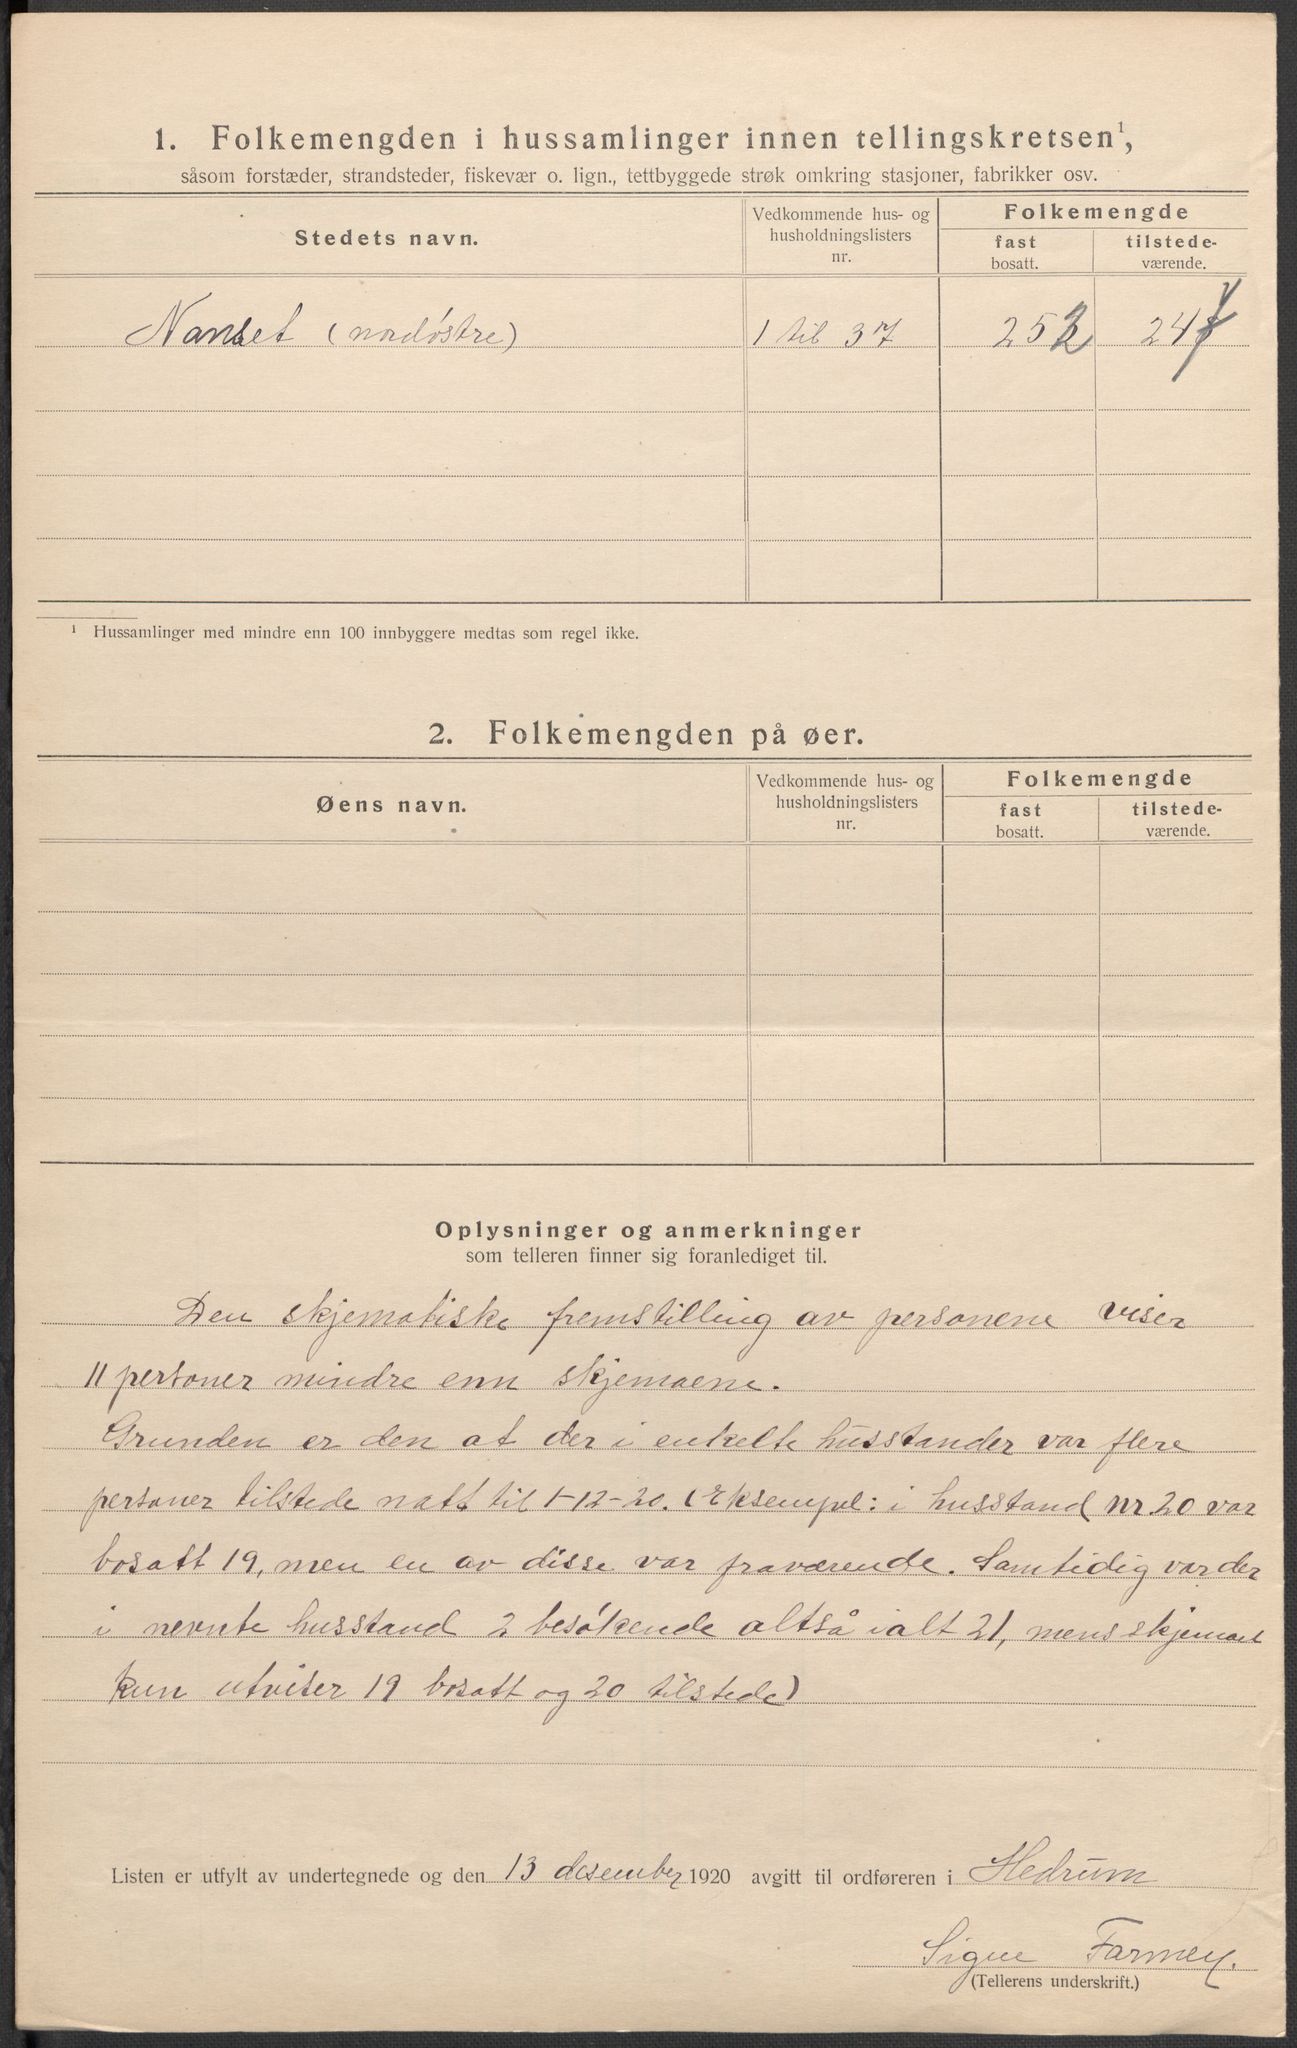 1. Folkemengden i hussamlinger innen tellingskretsen¹,
såsom forstæder, strandsteder, fiskevær o. lign., tettbyggede strøk omkring stasjoner, fabrikker osv.
Stedets navn.
Vedkommende hus- og
husholdningslisters
nr.
Folkemengde
fast
bosatt.
tilstede-
værende.
Nanset (nordøstre) 1 til 37 252 247
¹ Hussamlinger med mindre enn 100 innbyggere medtas som regel ikke.
2. Folkemengden på øer.
Øens navn.
Vedkommende hus- og
husholdningslisters
nr.
Folkemengde
fast
bosatt.
tilstede-
værende.
Oplysninger og anmerkninger
som telleren finner sig foranlediget til.
Den skjematiske fremstilling av personene viser
11 personer mindre enn skjemaene.
Grunden er den at der i enkelte husstander var flere
personer tilstede natt til 1-12-20. (Eksempel: i husstand nr. 20 var
bosatt 19, men en av disse var fraværende. Samtidig var der
i nevnte husstand 2 besökende altså ialt 21, mens skjemaet
kun utviser 19 bosatt og 20 tilstede)
Listen er utfylt av undertegnede og den 13 desember 1920 avgitt til ordføreren i Hedrum
Signe Farmen.
(Tellerens underskrift.)